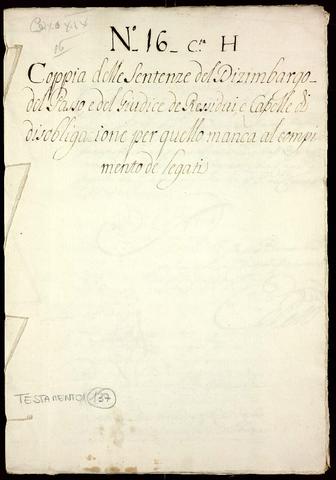 16
Nº 16 - Cª H
Coppia delle Sentenze del Dizimbargo-
del Passo e del Giudice de Residui, e Capelle di
disobligazione per quello manca al compi
mento de legati
TESTAMENTO 137